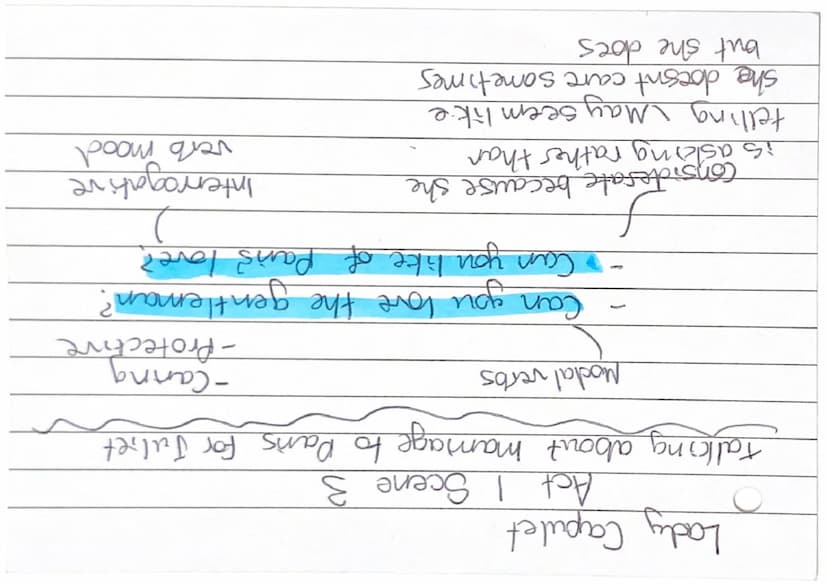 Lady Capulet
Act 1 Scene 3
Talking about marriage to Paris for Juliet
Modal verbs
- Caring
- Protective
- Can you love the gentleman?
- Can you like of Paris' love?
Considerate because she
is asking rather than
telling (May seem like
she doesnt care sometimes
but she does
Interrogative
verb mood